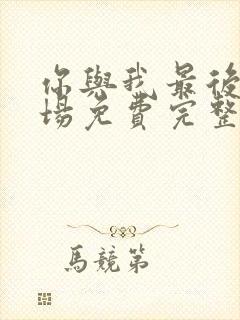 你與我最後
場免費完整
馬競第